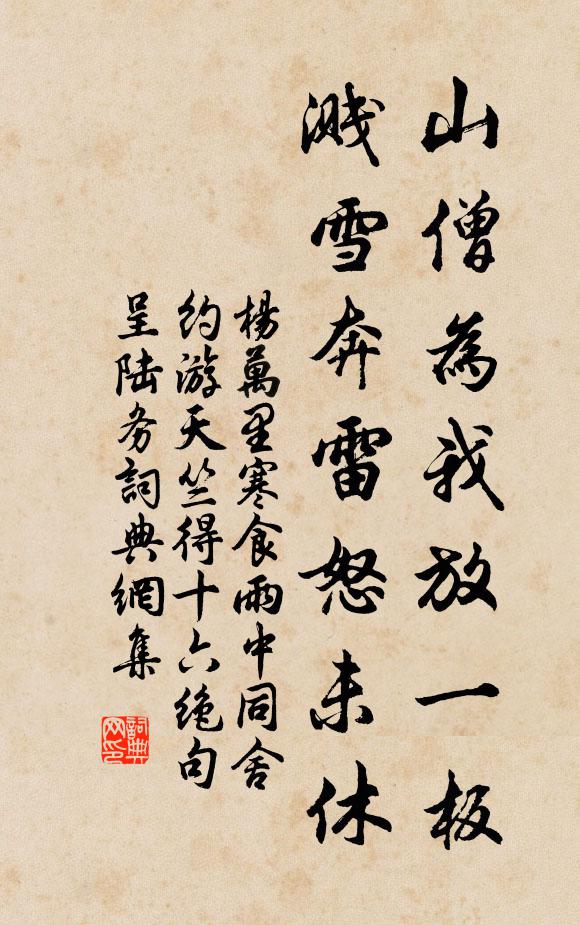 山僧為我放一板
濺雪奔雷怒未休
楊萬里寒食雨中同舍
約游天竺得十六绝句
呈陆务詞典網集
詞典
网印